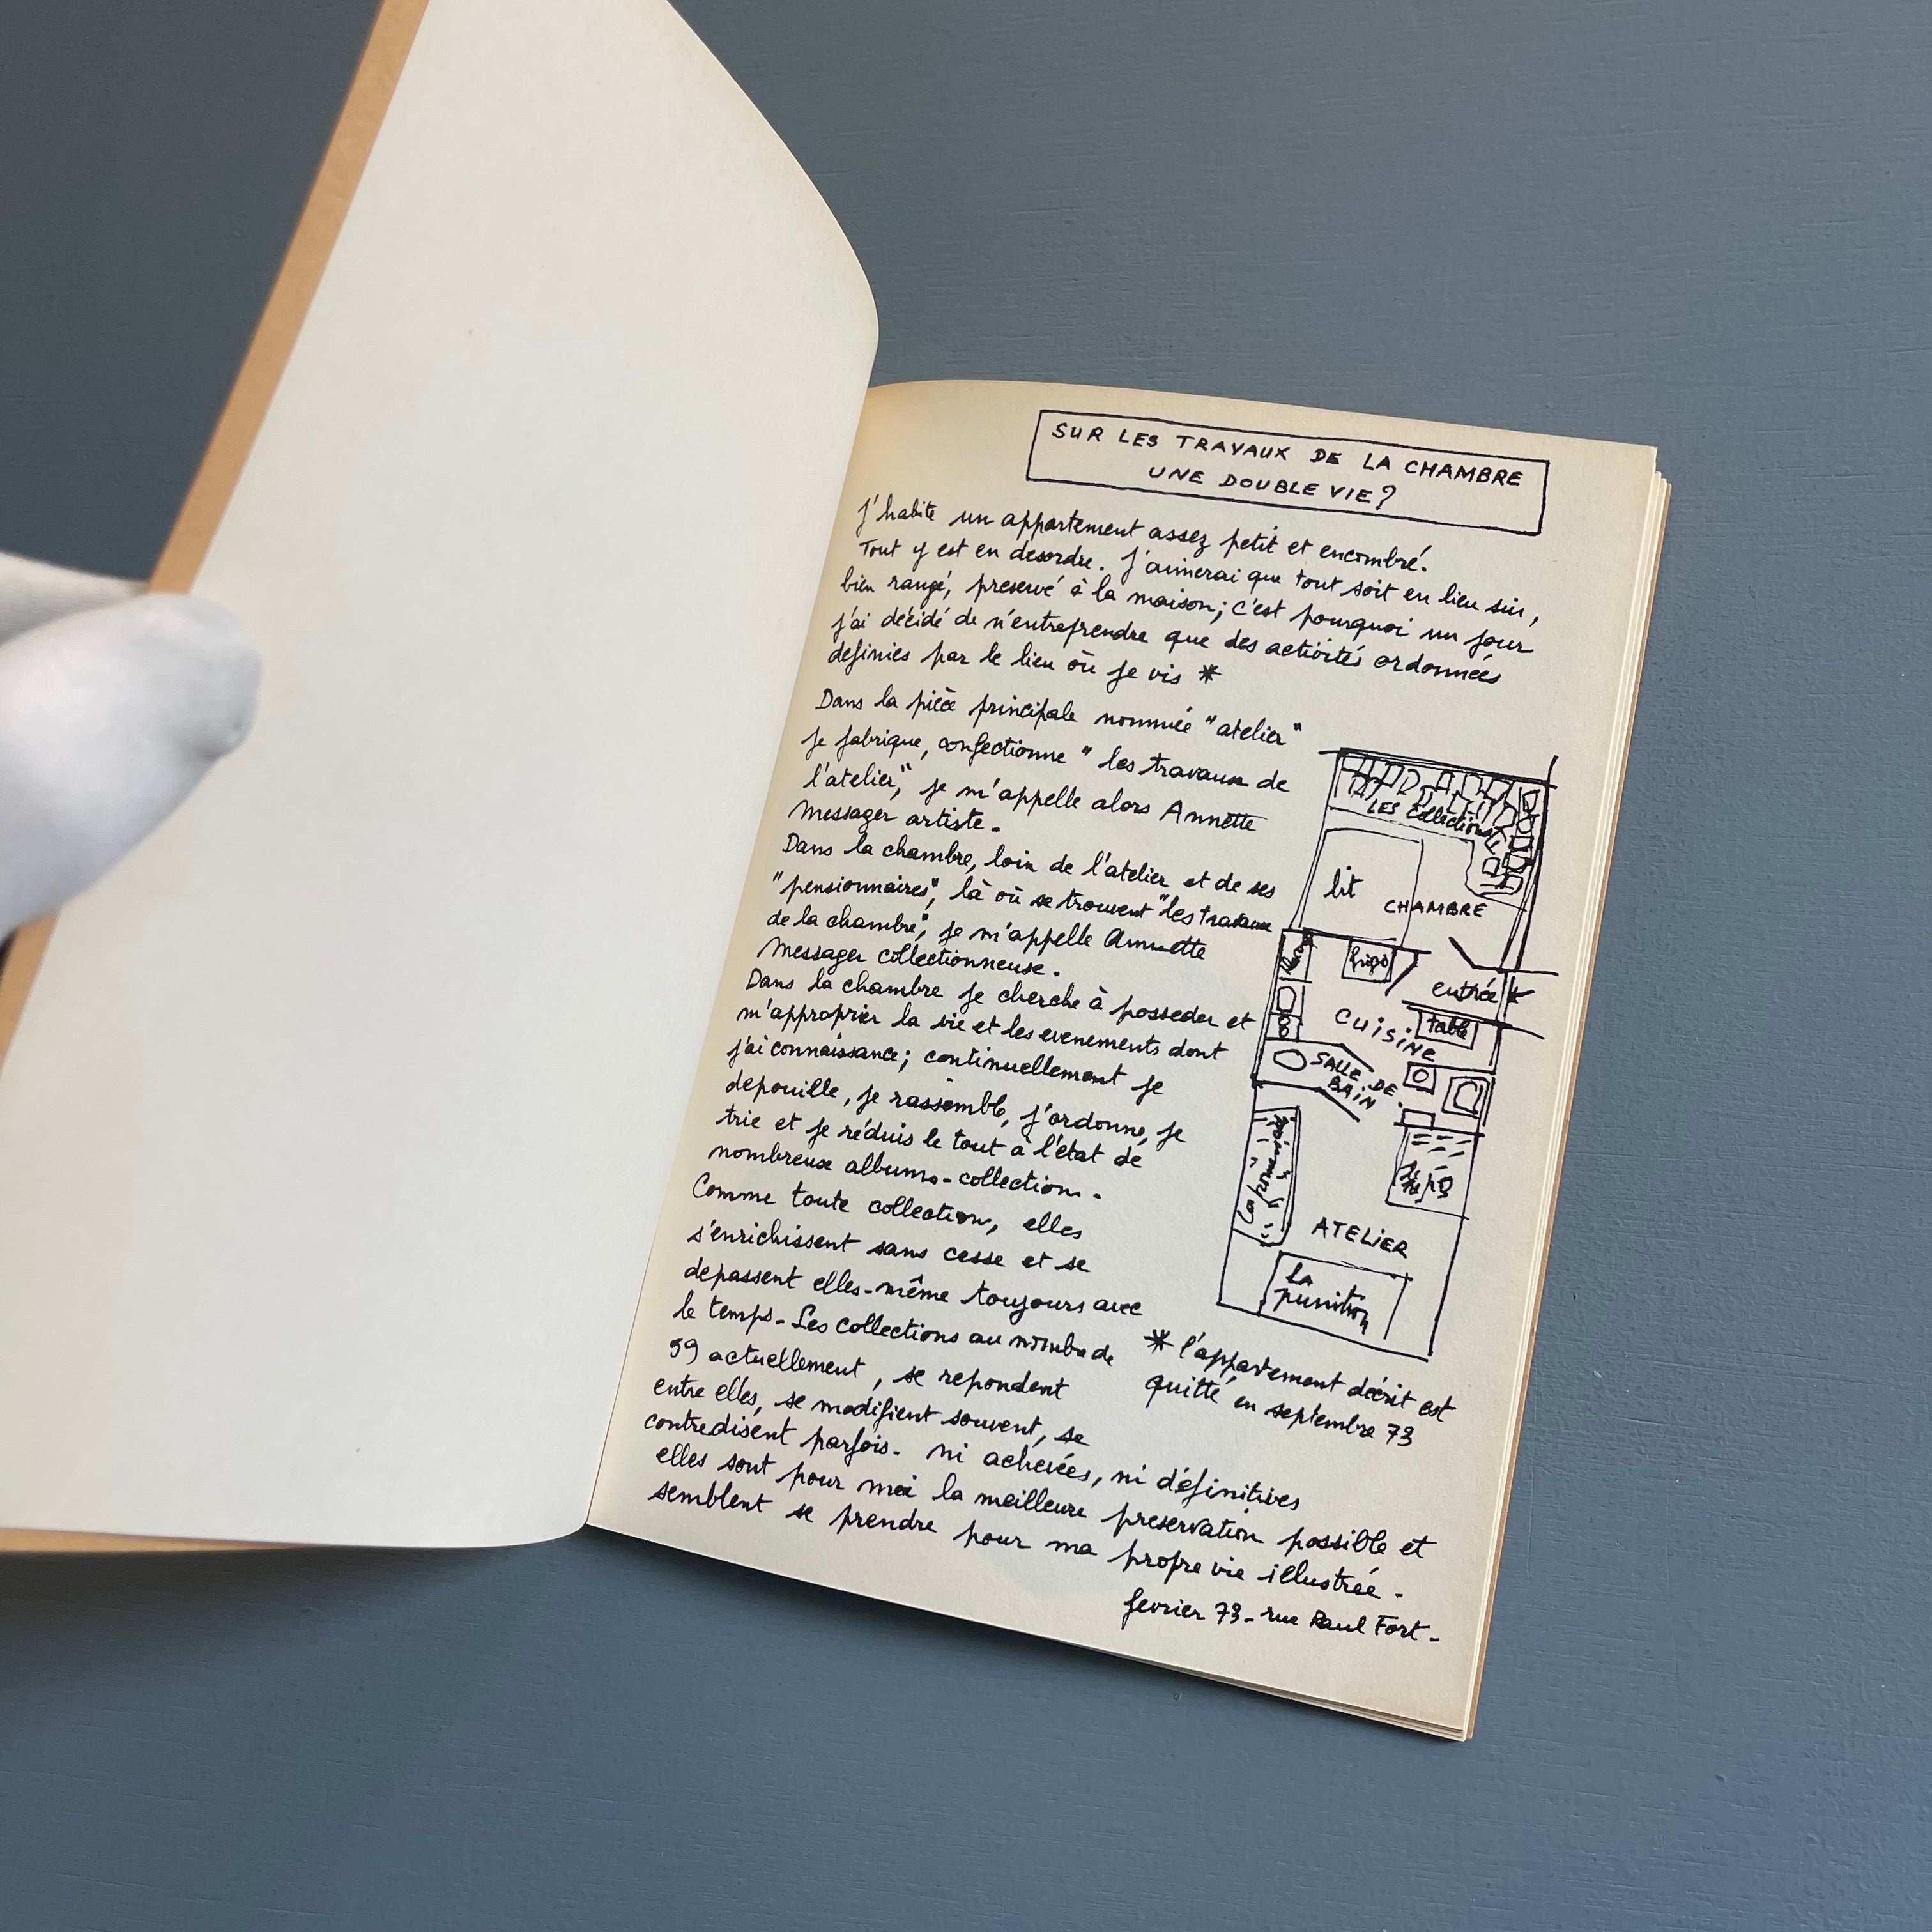 SUR LES TRAVAUX DE LA CHAMBRE
UNE DOUBLE VIE ?
J'habite un appartement assez petit et encombré.
Tout y est en desordre. J'aimerai que tout soit en lieu sûr,
bien rangé, preservé à la maison; c'est pourquoi un jour
j'ai décidé de n'entreprendre que des activités ordonnées
definies par le lieu où je vis *
Dans la pièce principale nommée "atelier"
je fabrique, confectionne "les travaux de
l'atelier", je m'appelle alors Annette
Messager artiste.
Dans la chambre, loin de l'atelier et de ses
"pensionnaires", là où se trouvent "les travaux
de la chambre", je m'appelle Annette
Messager collectionneuse.
Dans la chambre je cherche à posseder et
m'approprier la vie et les evenements dont
j'ai connaissance; continuellement je
depouille, je rassemble, j'ordonne, je
trie et je réduis le tout à l'état de
nombreux albums-collections.
Comme toute collection, elles
s'enrichissent sans cesse et se
depassent elles-même toujours avec
le temps. Les collections au nombre de
59 actuellement, se repondent
entre elles, se modifient souvent, se
contredisent parfois. ni achevées, ni définitives
elles sont pour moi la meilleure preservation possible et
semblent se prendre pour ma propre vie illustrée.
fevrier 73 - rue Paul Fort -
LES Collections
lit
CHAMBRE
frigo
entrée
CUISINE
table
SALLE DE
BAIN
la promenade
le repos
ATELIER
la
punition
* l'appartement décrit est
quitté en septembre 73